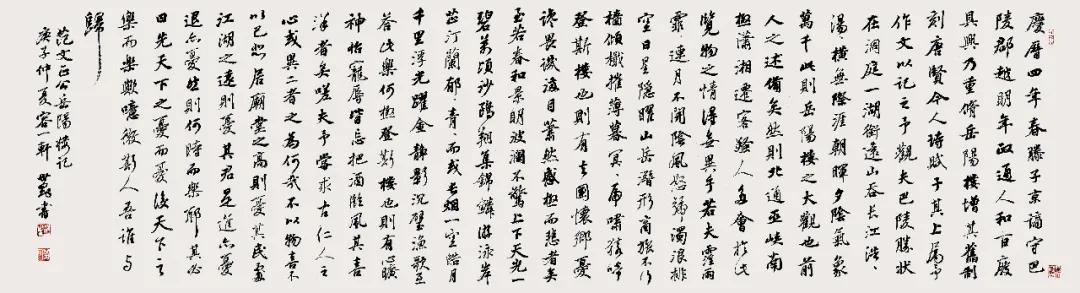 慶曆四年春滕子京謫守巴
陵郡越明年政通人和百廢
具興乃重脩岳陽樓增其舊制
刻唐賢今人詩賦于其上屬予
作文以記之予觀夫巴陵勝狀
在洞庭一湖銜遠山吞長江浩〻
湯〻橫無際涯朝暉夕陰氣象
萬千此則岳陽樓之大觀也前
人之述備矣然則北通巫峽南
極瀟湘遷客騷人多會於此
覽物之情得無異乎若夫霪雨
霏〻連月不開陰風怒號濁浪排
空日星隱曜山岳潛形商旅不行
檣傾楫摧薄暮冥〻虎嘯猿啼
登斯樓也則有去國懷鄉憂
讒畏譏滿目蕭然感極而悲者矣
至若春和景明波瀾不驚上下天光一
碧萬頃沙鷗翔集錦鱗游泳岸
芷汀蘭郁〻青〻而或長煙一空皓月
千里浮光躍金靜影沉璧漁歌互
答此樂何極登斯樓也則有心曠
神怡寵辱皆忘把酒臨風其喜
洋〻者矣嗟夫予嘗求古仁人之
心或異二者之為何哉不以物喜不
以己悲居廟堂之高則憂其民處
江湖之遠則憂其君是進亦憂
退亦憂然則何時而樂耶其必
曰先天下之憂而憂後天下之
樂而樂歟噫微斯人吾誰與
歸
范文正公岳陽樓記
庚子仲夏客一軒書